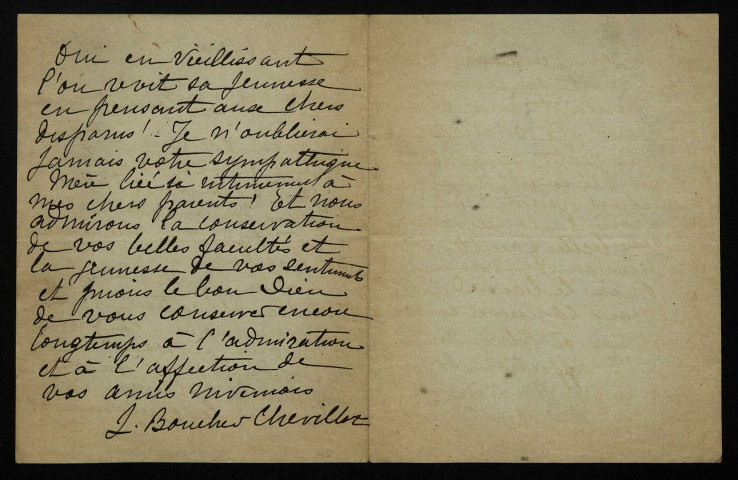 Oui en vieillissant
l'on revit sa jeunesse
en pensant aux chers
disparus! - Je n'oublierai
jamais votre sympathique
Mère liée si intimement à
mes chers parents! Et nous
admirons la conservation
de vos belles facultés et
la jeunesse de vos sentiments
et prions le bon Dieu
de vous conserver encore
longtemps à l'admiration
et à l'affection de
vos amis nivernais
J. Boucher Chevillot